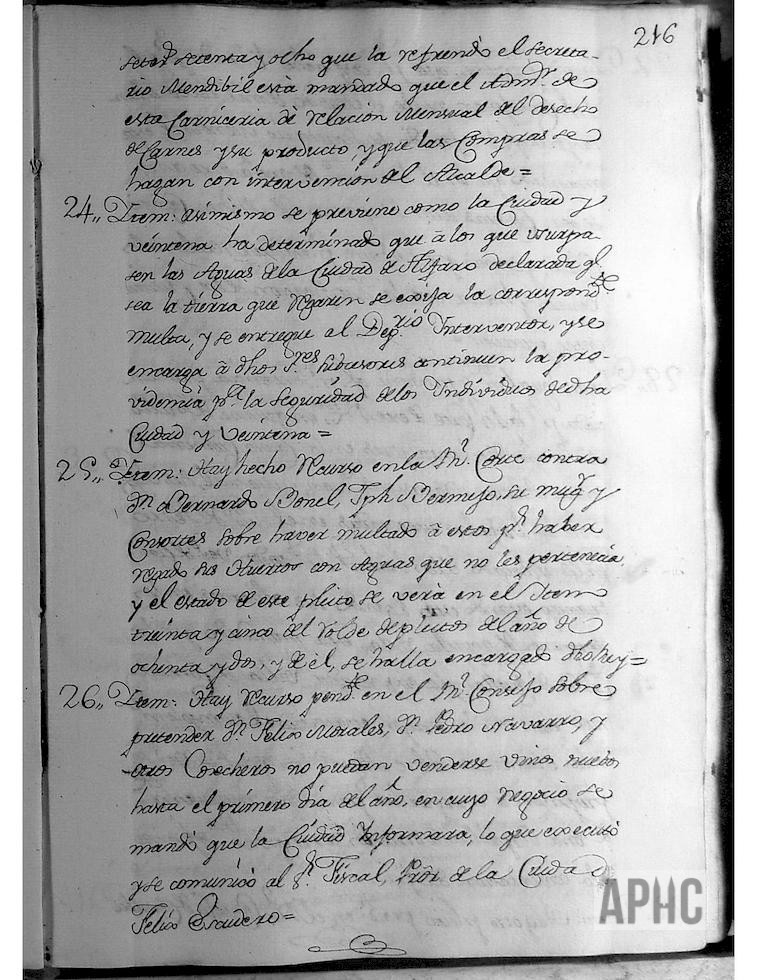 216
setez.s setenta y ocho que la refrendó el secreta-
rio Mendibil está mandado que el Admõr. de
esta Carniceria dè relacion Mensual del desecho
de Carnes y su producto, y que las Compras se
hagan con intervencion del Alcalde=
24,, Ytem: Asimismo se previene como la Ciudad y
veintena ha determinado que à los que usurpa-
sen las Aguas de la Ciudad de Alfaro declarada ql.
sea la tierra que regaren se exija la correspond.te
multa, y se entregue al Dep.rio Interventor, y se
encarga à dhos S.res subcesores continuen la pro-
videncia p.a la seguridad de los Individuos de dha
Ciudad y Veintena=
25,, Ytem: Hay hecho Recurso en la Rl. Corte contra
Dn. Bernardo Bonel, Jph. Bermejo, su mug.r y
Consortes sobre haver multado à estos pr. haber
regado sus Huertos con Aguas que no les pertenecia,
y el estado de este pleito se verà en el Item
treinta y cinco del Rolde de pleitos del año de
ochenta y dos, y de èl, se halla encargado dho Rey=
26,, Ytem: Hay Recurso pend.te en el Rl. Consejo sobre
pretender Dn. Felix Morales, Dn. Pedro Navarro, y
otros Cosecheros no puedan venderse vinos nuebos
hasta el primero dia del año, en cuyo Negocio se
mandó que la Ciudad Informara, lo que executó
y se comunicó al S.r Fiscal, Prõr de la Ciudad
Felix Escudero=
APHC